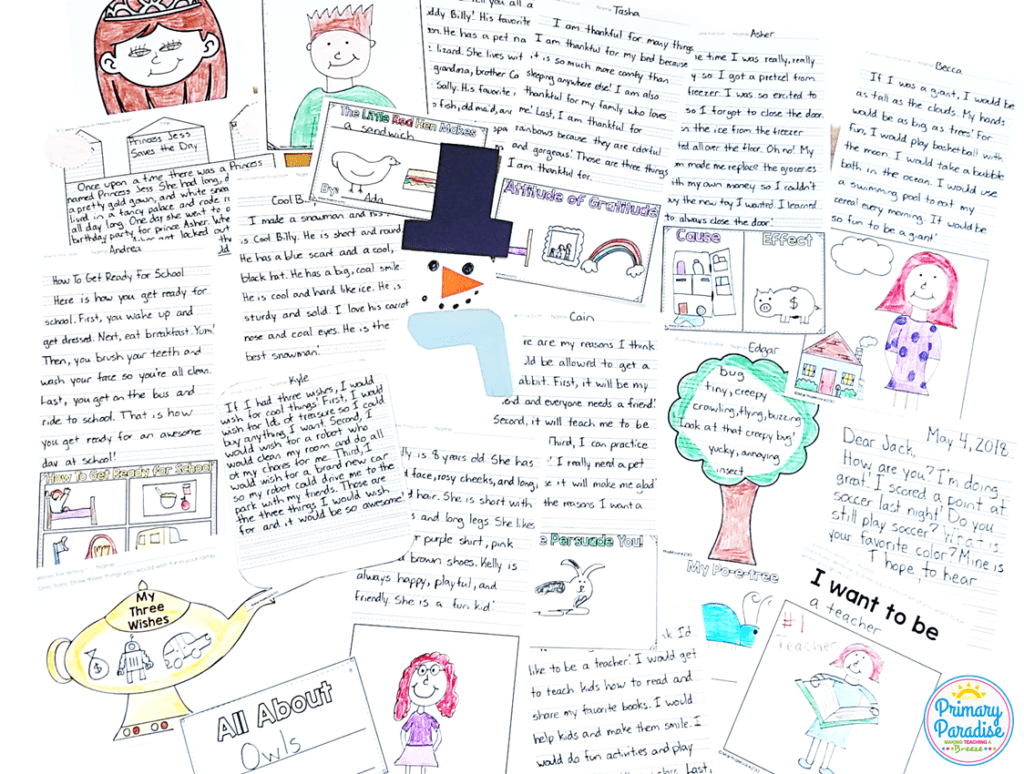 Princess Jess
Saves the Day
Once upon a time there was a Princess
named Princess Jess. She had long,
a pretty gold gown, and white
lived in a fancy palace and rode
all day long. One day she went to
birthday party for prince Asher.
got locked out
Andrea
How To Get Ready for School
Here is how you get ready for
school. First, you wake up and
get dressed. Next, eat breakfast. Yum!
Then, you brush your teeth and
wash your face so you're all clean.
Last, you get on the bus and
ride to school. That is how
you get ready for an awesome
day at school!
How To Get Ready for School
The Little Red Hen Makes
a sandwich
By: Ada
Cool B
I made a snowman and his
is Cool Billy. He is short and round.
He has a blue scarf and a cool,
black hat. He has a big, coal smile.
He is cool and hard like ice. He is
sturdy and solid. I love his carrot
nose and coal eyes. He is the
best snowman!
you all a
Billy! His favorite
He has a pet
lizard. She lives
grandma, brother
Sally. His favorite
fish, old maid, and
Tasha
I am thankful for many things
I am thankful for my bed because
it is so much more comfy than
sleeping anywhere else! I am also
thankful for my family who loves
me! Last, I am thankful for
rainbows because they are colorful
and gorgeous! Those are three things
I am thankful for.
Attitude of Gratitude
Asher
time I was really, really
so I got a pretzel from
freezer. I was so excited to
so I forgot to close the door.
the ice from the freezer
all over the floor. Oh no! My
mom made me replace the groceries
with my own money so I couldn't
the new toy I wanted. I learned
to always close the door!
Cause
Effect
$
Becca
If I was a giant, I would be
as tall as the clouds. My hands
would be as big as trees! For
fun, I would play basketball with
the moon. I would take a bubble
bath in the ocean. I would use
a swimming pool to eat my
cereal every morning. It would be
so fun to be a giant!
Kyle
If I had three wishes, I would
wish for cool things! First, I would
wish for lots of treasure so I could
buy anything I want. Second, I
would wish for a robot who
would clean my room and do all
of my chores for me. Third, I
would wish for a brand new car
so my robot could drive me to the
park with my friends. Those are
the three things I would wish
for and it would be so awesome!
My
Three
Wishes
$
All About
Owls
Cain
are my reasons I think
be allowed to get a
rabbit. First, it will be my
friend and everyone needs a friend!
Second, it will teach me to be
Third, I can practice
I really need a pet
it will make me glad!
the reasons I want a
Persuade You!
is 8 years old. She has
face, rosy cheeks, and long,
hair. She is short with
and long legs. She likes
purple shirt, pink
brown shoes. Kelly is
always happy, playful, and
friendly. She is a fun kid!
Edgar
bug
tiny, creepy
crawling, flying, buzzing
Look at that creepy bug!
yucky, annoying
insect
My Po-e-tree
May 4, 2018
Dear Jack,
How are you? I'm doing
great! I scored a point at
soccer last night! Do you
still play soccer? What is
your favorite color? Mine is
I hope to hear
I want to be
a teacher
#1
Teacher
I'd
like to be a teacher! I would get
to teach kids how to read and
share my favorite books. I would
help kids and make them smile. I
would do fun activities and play
Last,
Primary
Paradise
MAKING TEACHING A
Breeze